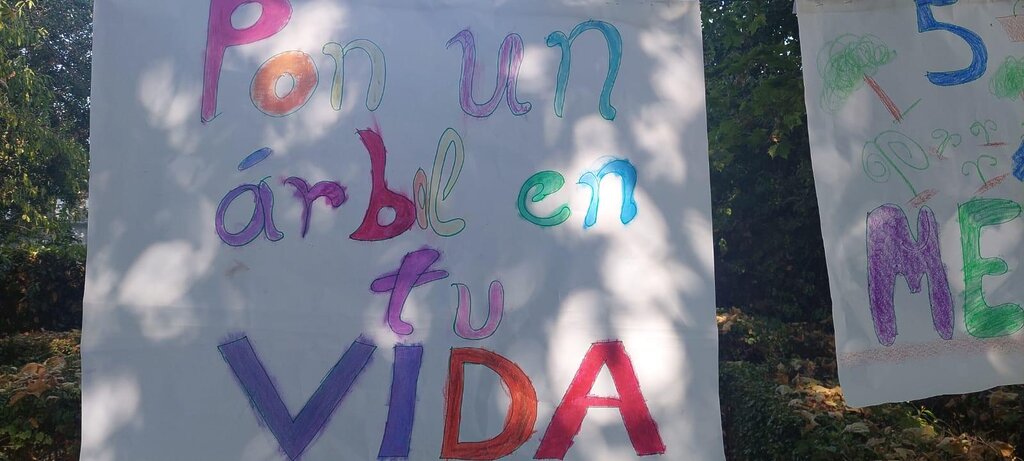 Pon un
árbol en
tu
VIDA
5
ME